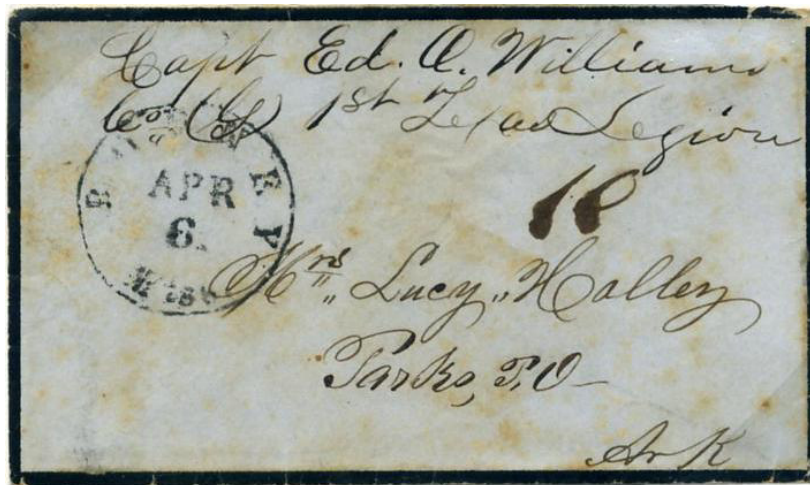 Capt Ed. O. Williams
Co G 1st Texas Legion
APR
6
Miss
10
Mrs. Lucy Holley
Parks, P.O
Ark